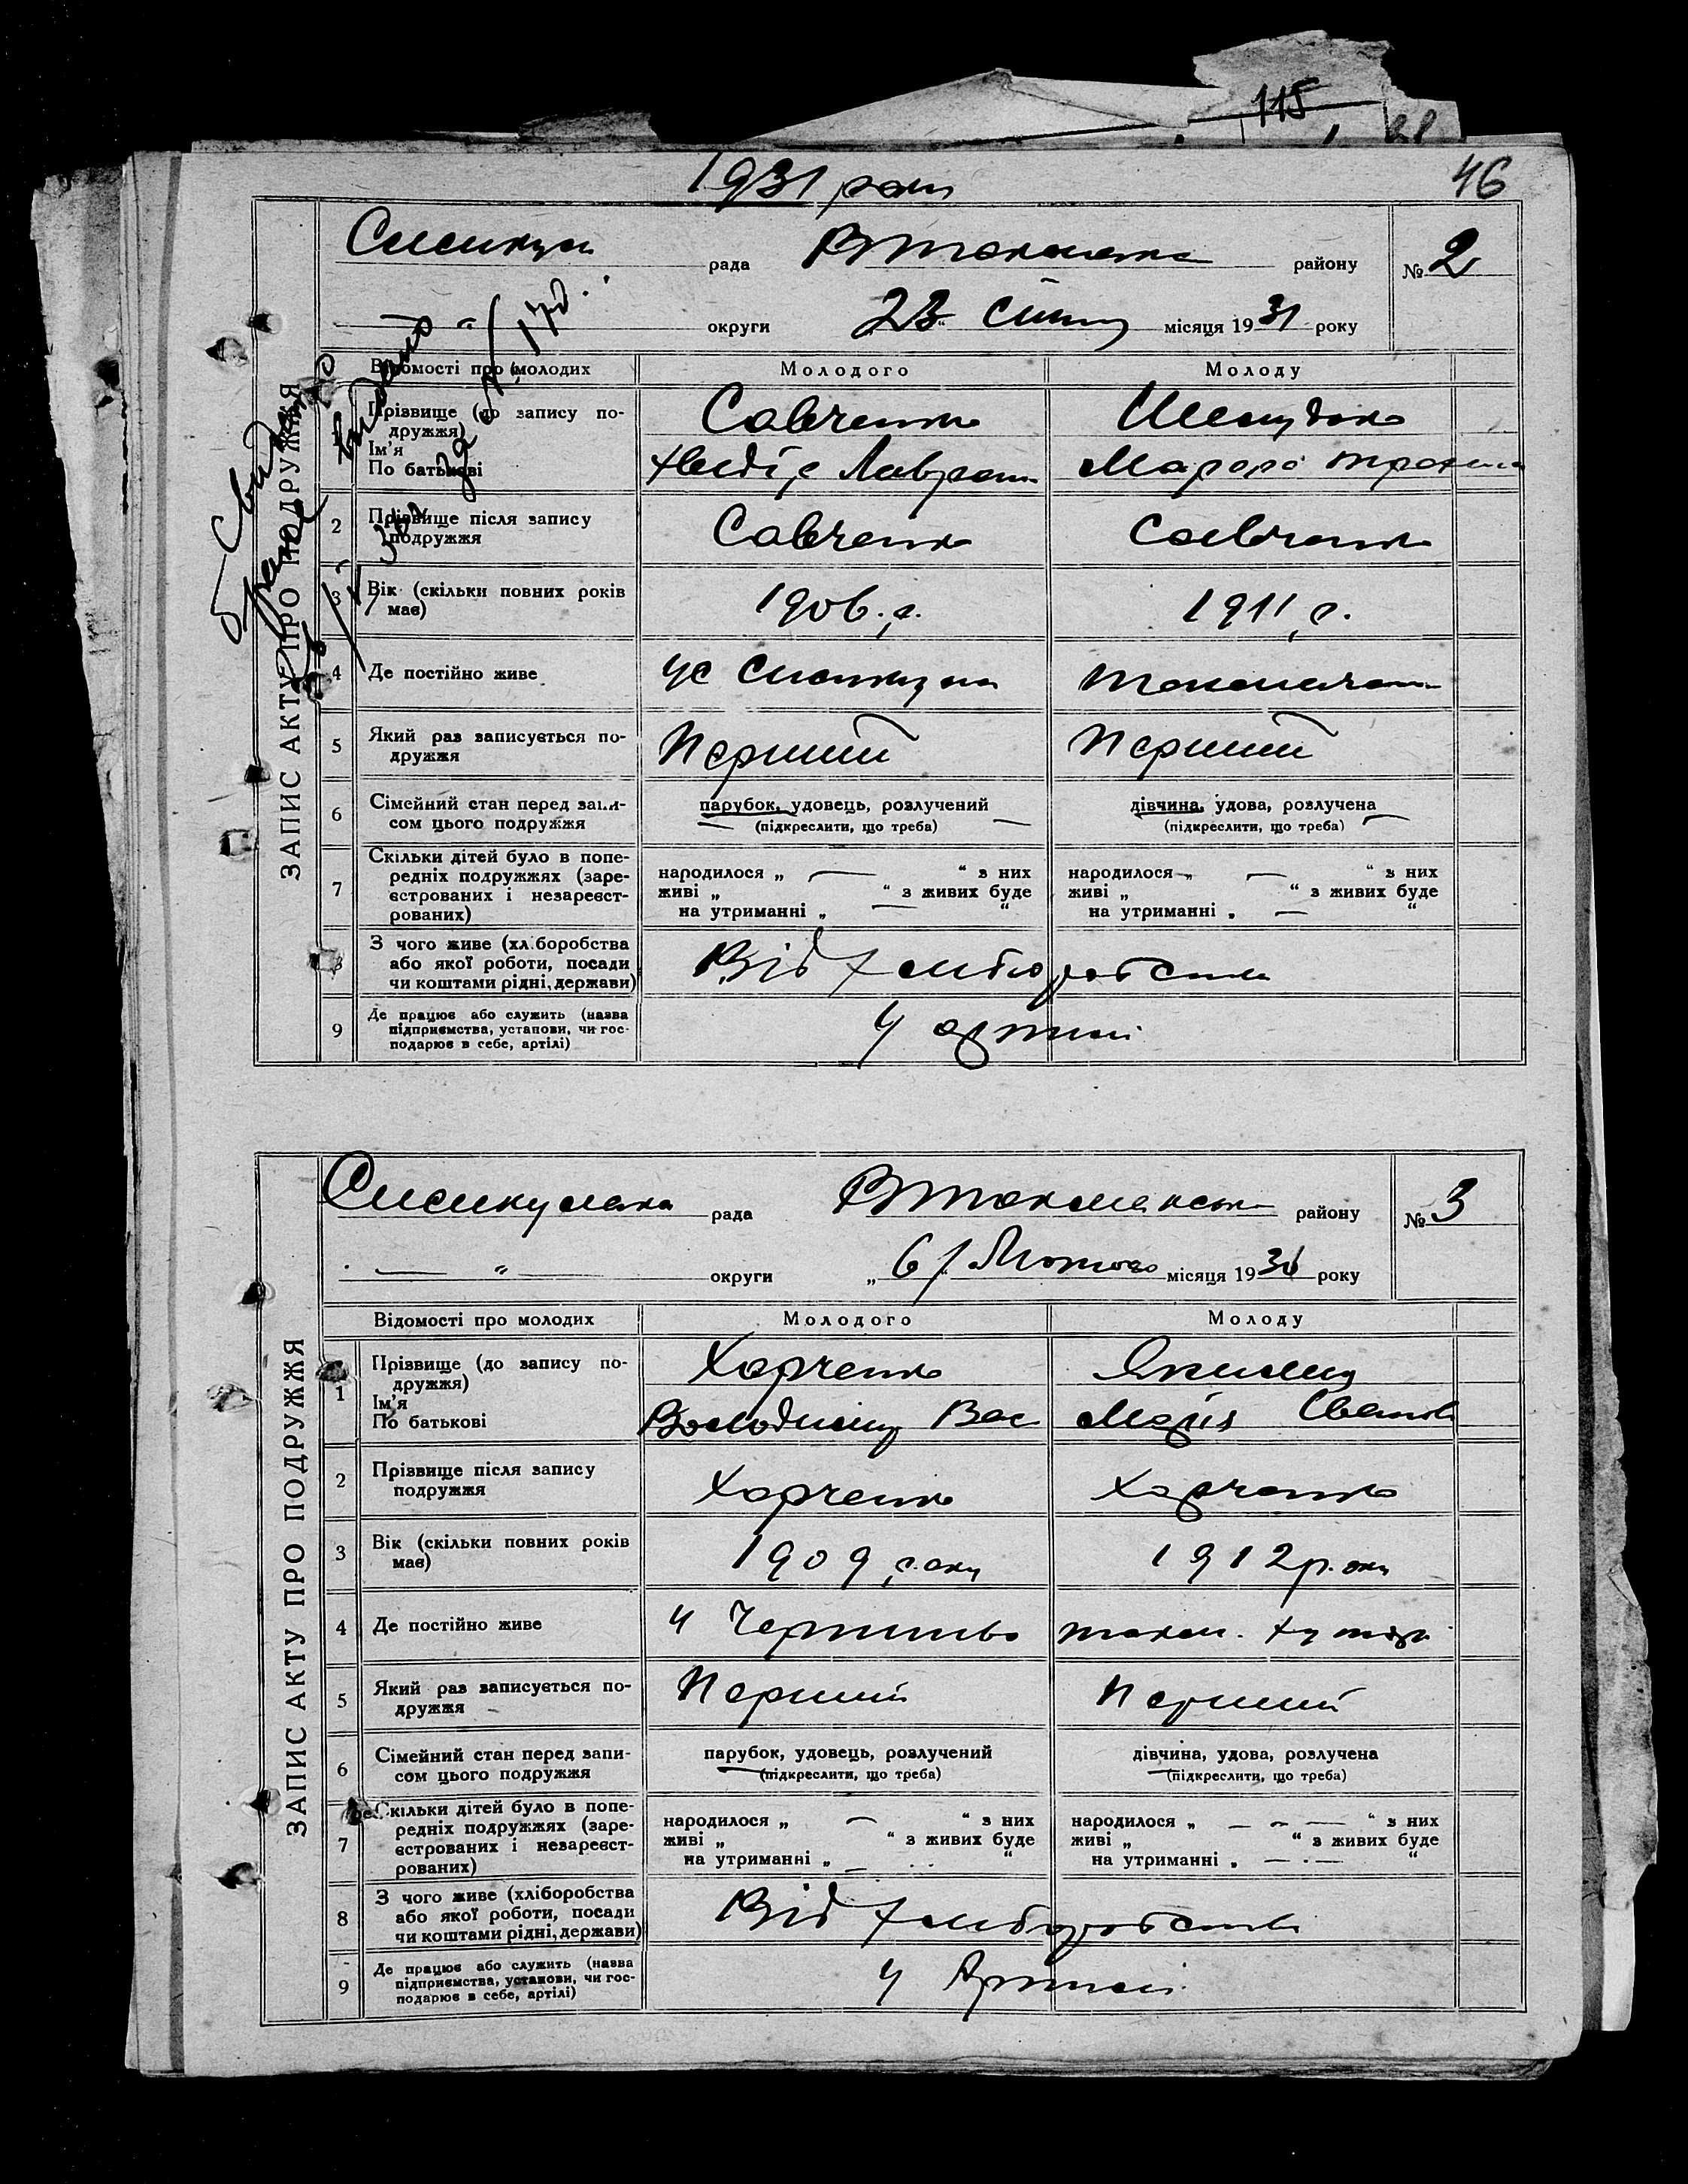 115
1931 року
46
ЗАПИС АКТУ ПРО ПОДРУЖЖЯ
рада
району
№ 2
" округи
23 січня місяця 1931 року
видано
Відомості про молодих
Молодого
Молоду
1 Прізвище (до запису по-
дружжя)
Ім'я
По батькові
Савченко
2 Прізвище після запису
подружжя
Савченко
Савченко
3 Вік (скільки повних років
має)
1906 р.
1911 р.
4 Де постійно живе
5 Який раз записується по-
дружжя
Перший
Перший
6 Сімейний стан перед запи-
сом цього подружжя
парубок, удовець, розлучений
(підкреслити, що треба)
дівчина, удова, розлучена
(підкреслити, що треба)
7 Скільки дітей було в попе-
редніх подружжях (заре-
єстрованих і незареєст-
рованих)
народилося „ — “ з них
живі „ “ з живих буде
на утриманні „ — “
народилося „ — “ з них
живі „ “ з живих буде
на утриманні „ — “
8 З чого живе (хліборобства
або якої роботи, посади
чи коштами рідні, держави)
Від хліборобства
9 Де працює або служить (назва
підприємства, установи, чи гос-
подарює в себе, артілі)
У артілі
ЗАПИС АКТУ ПРО ПОДРУЖЖЯ
рада
району
№ 3
— “ — округи
„ 6 “ Лютого місяця 1931 року
Відомості про молодих
Молодого
Молоду
1 Прізвище (до запису по-
дружжя)
Ім'я
По батькові
Харченко
Володимир Вас
Марія Іванов
2 Прізвище після запису
подружжя
Харченко
Харченко
3 Вік (скільки повних років
має)
1909 року
1912 року
4 Де постійно живе
5 Який раз записується по-
дружжя
Перший
Перший
6 Сімейний стан перед запи-
сом цього подружжя
парубок, удовець, розлучений
(підкреслити, що треба)
дівчина, удова, розлучена
(підкреслити, що треба)
7 Скільки дітей було в попе-
редніх подружжях (заре-
єстрованих і незареєст-
рованих)
народилося „ — “ з них
живі „ “ з живих буде
на утриманні „ — “
народилося „ — “ з них
живі „ “ з живих буде
на утриманні „ — “
8 З чого живе (хліборобства
або якої роботи, посади
чи коштами рідні, держави)
Від хліборобства
9 Де працює або служить (назва
підприємства, установи, чи гос-
подарює в себе, артілі)
У Артілі